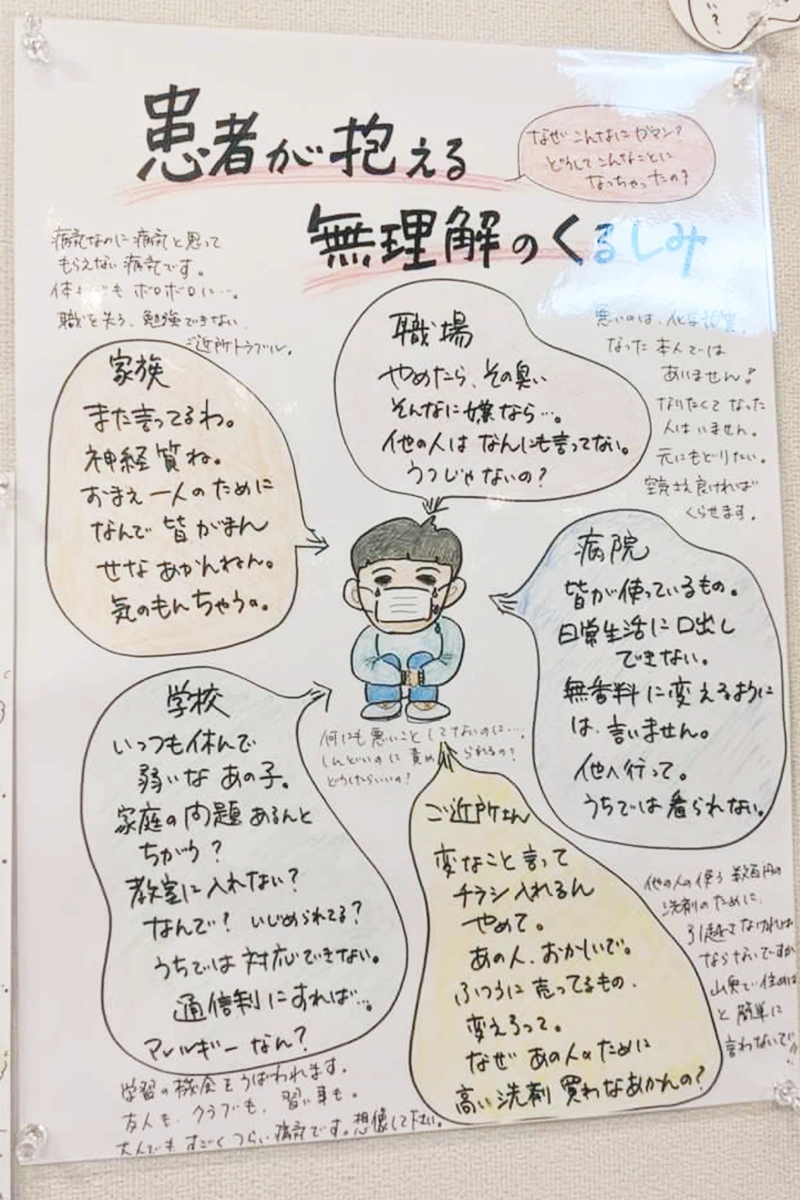 患者が抱える
無理解のくるしみ
なぜ こんなにガマン?
どうしてこんなことに
なっちゃったの?
病気なのに病気と思って
もらえない病気です。
ボロボロに…。
職を失う、勉強できない
ご近所トラブル。
職場
やめたら、その臭い
そんなに嫌なら…。
他の人は なんにも言ってない。
うつじゃないの?
悪いのは、化学物質。
なった本人では
ありません!
なりたくて なった
人はいません。
元にもどりたい。
空気さえ良ければ
くらせます。
家族
また言ってるわ。
神経質ね。
おまえ一人のために
なんで 皆 がまん
せな あかんねん。
気のもんちゃうの。
病院
皆が使っているもの。
日常生活に口出し
できない。
無香料に変えるように
は、言いません。
他へ行って。
うちでは看られない。
学校
いっつも休んで
弱いな あの子。
家庭の問題あるんと
ちがう?
教室に入れない?
なんで? いじめられてる?
うちでは 対応できない。
通信制にすれば…。
アレルギーなん?
何にも悪いこと してないのに…。
しんどいのに 責められるの?
どうしたらいいの?
ご近所さん
変なこと言って
チラシ入れるん
やめて。
あの人、おかしいで。
ふつうに売ってるもの、
変えろって。
なぜ あの人のために
高い洗剤 買わなあかんの?
他の人の使う 数百円の
洗剤のために、
引越さなければ
ならないですか
山奥で住めば
と 簡単に
言わないで
学習の機会をうばわれます。
友人も、クラブも、習い事も。
大人でも すごく つらい病気です。想像して下さい。
い?